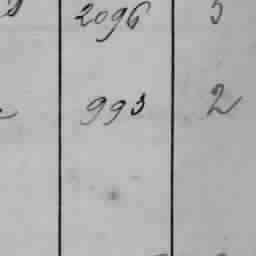 2096 5
993 2